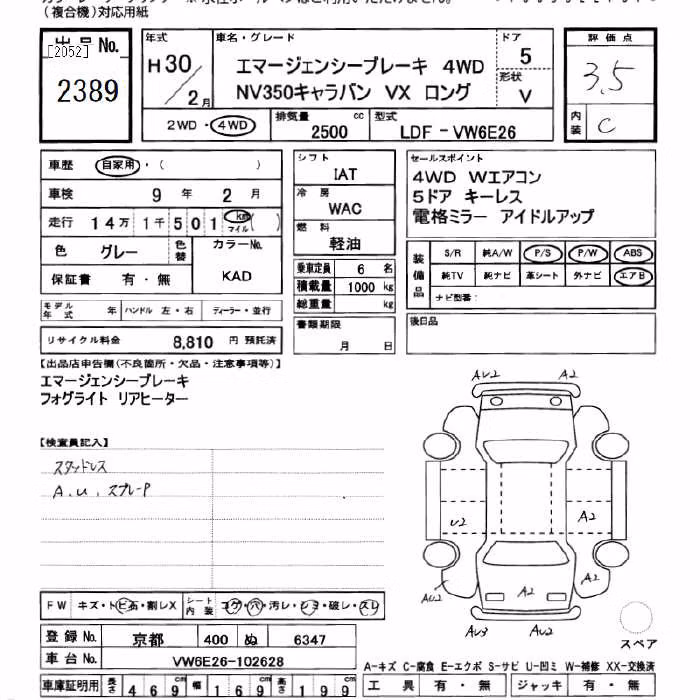 （複合機）対応用紙
出品No.
[2052]
2389
年式
H30/2月
車名・グレード
エマージェンシーブレーキ 4WD
NV350キャラバン VX ロング
ドア
5
形状
V
評価点
3.5
内装
C
2WD・4WD
排気量
2500
cc
型式
LDF - VW6E26
車歴
自家用・( )
車検
9 年 2 月
走行
14万 1千 501 km マイル ( )
色
グレー
色替
カラーNo.
KAD
保証書
有・無
モデル年式
年
ハンドル 左・右
ディーラー・並行
リサイクル料金
8,810 円 預託済
シフト
IAT
冷房
WAC
燃料
軽油
乗車定員 6 名
積載量 1000 kg
総重量 kg
書類期限
月 日
セールスポイント
4WD Wエアコン
5ドア キーレス
電格ミラー アイドルアップ
装備品
S/R 純A/W P/S P/W ABS
純TV 純ナビ 革シート 外ナビ エアB
ナビ型番：
後日品
【出品店申告欄(不良箇所・欠品・注意事項等)】
エマージェンシーブレーキ
フォグライト リアヒーター
【検査員記入】
スタッドレス
A.U.スプレーP
AU2
A2
U2
A2
AU2
A2
A2
AU3
AU2
スペア
FW キズ・トビ石・割レX
シート内装 コゲ・穴・汚レ・シミ・破レ・スレ
登録No. 京都 400 ぬ 6347
車台No. VW6E26-102628
車庫証明用 長さ 469cm 幅 169cm 高さ 199cm
A-キズ C-腐食 E-エクボ S-サビ U-凹ミ W-補修 XX-交換済
工具 有・無 ジャッキ 有・無